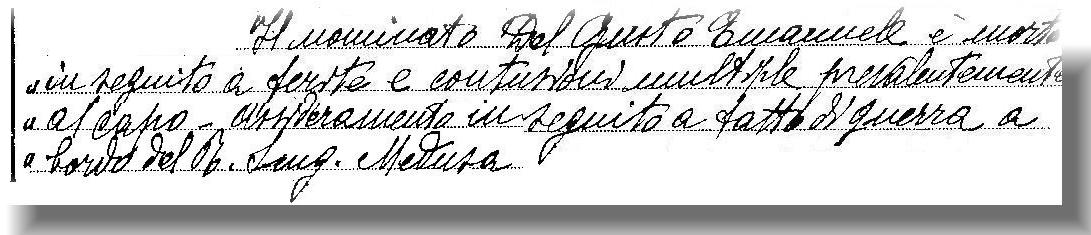 Il nominato Del Giusto Emanuele è morto
" in seguito a ferite e contusioni multiple prevalentemente
" al capo - assideramento in seguito a fatto di guerra a
" bordo del R. Smg. Medusa